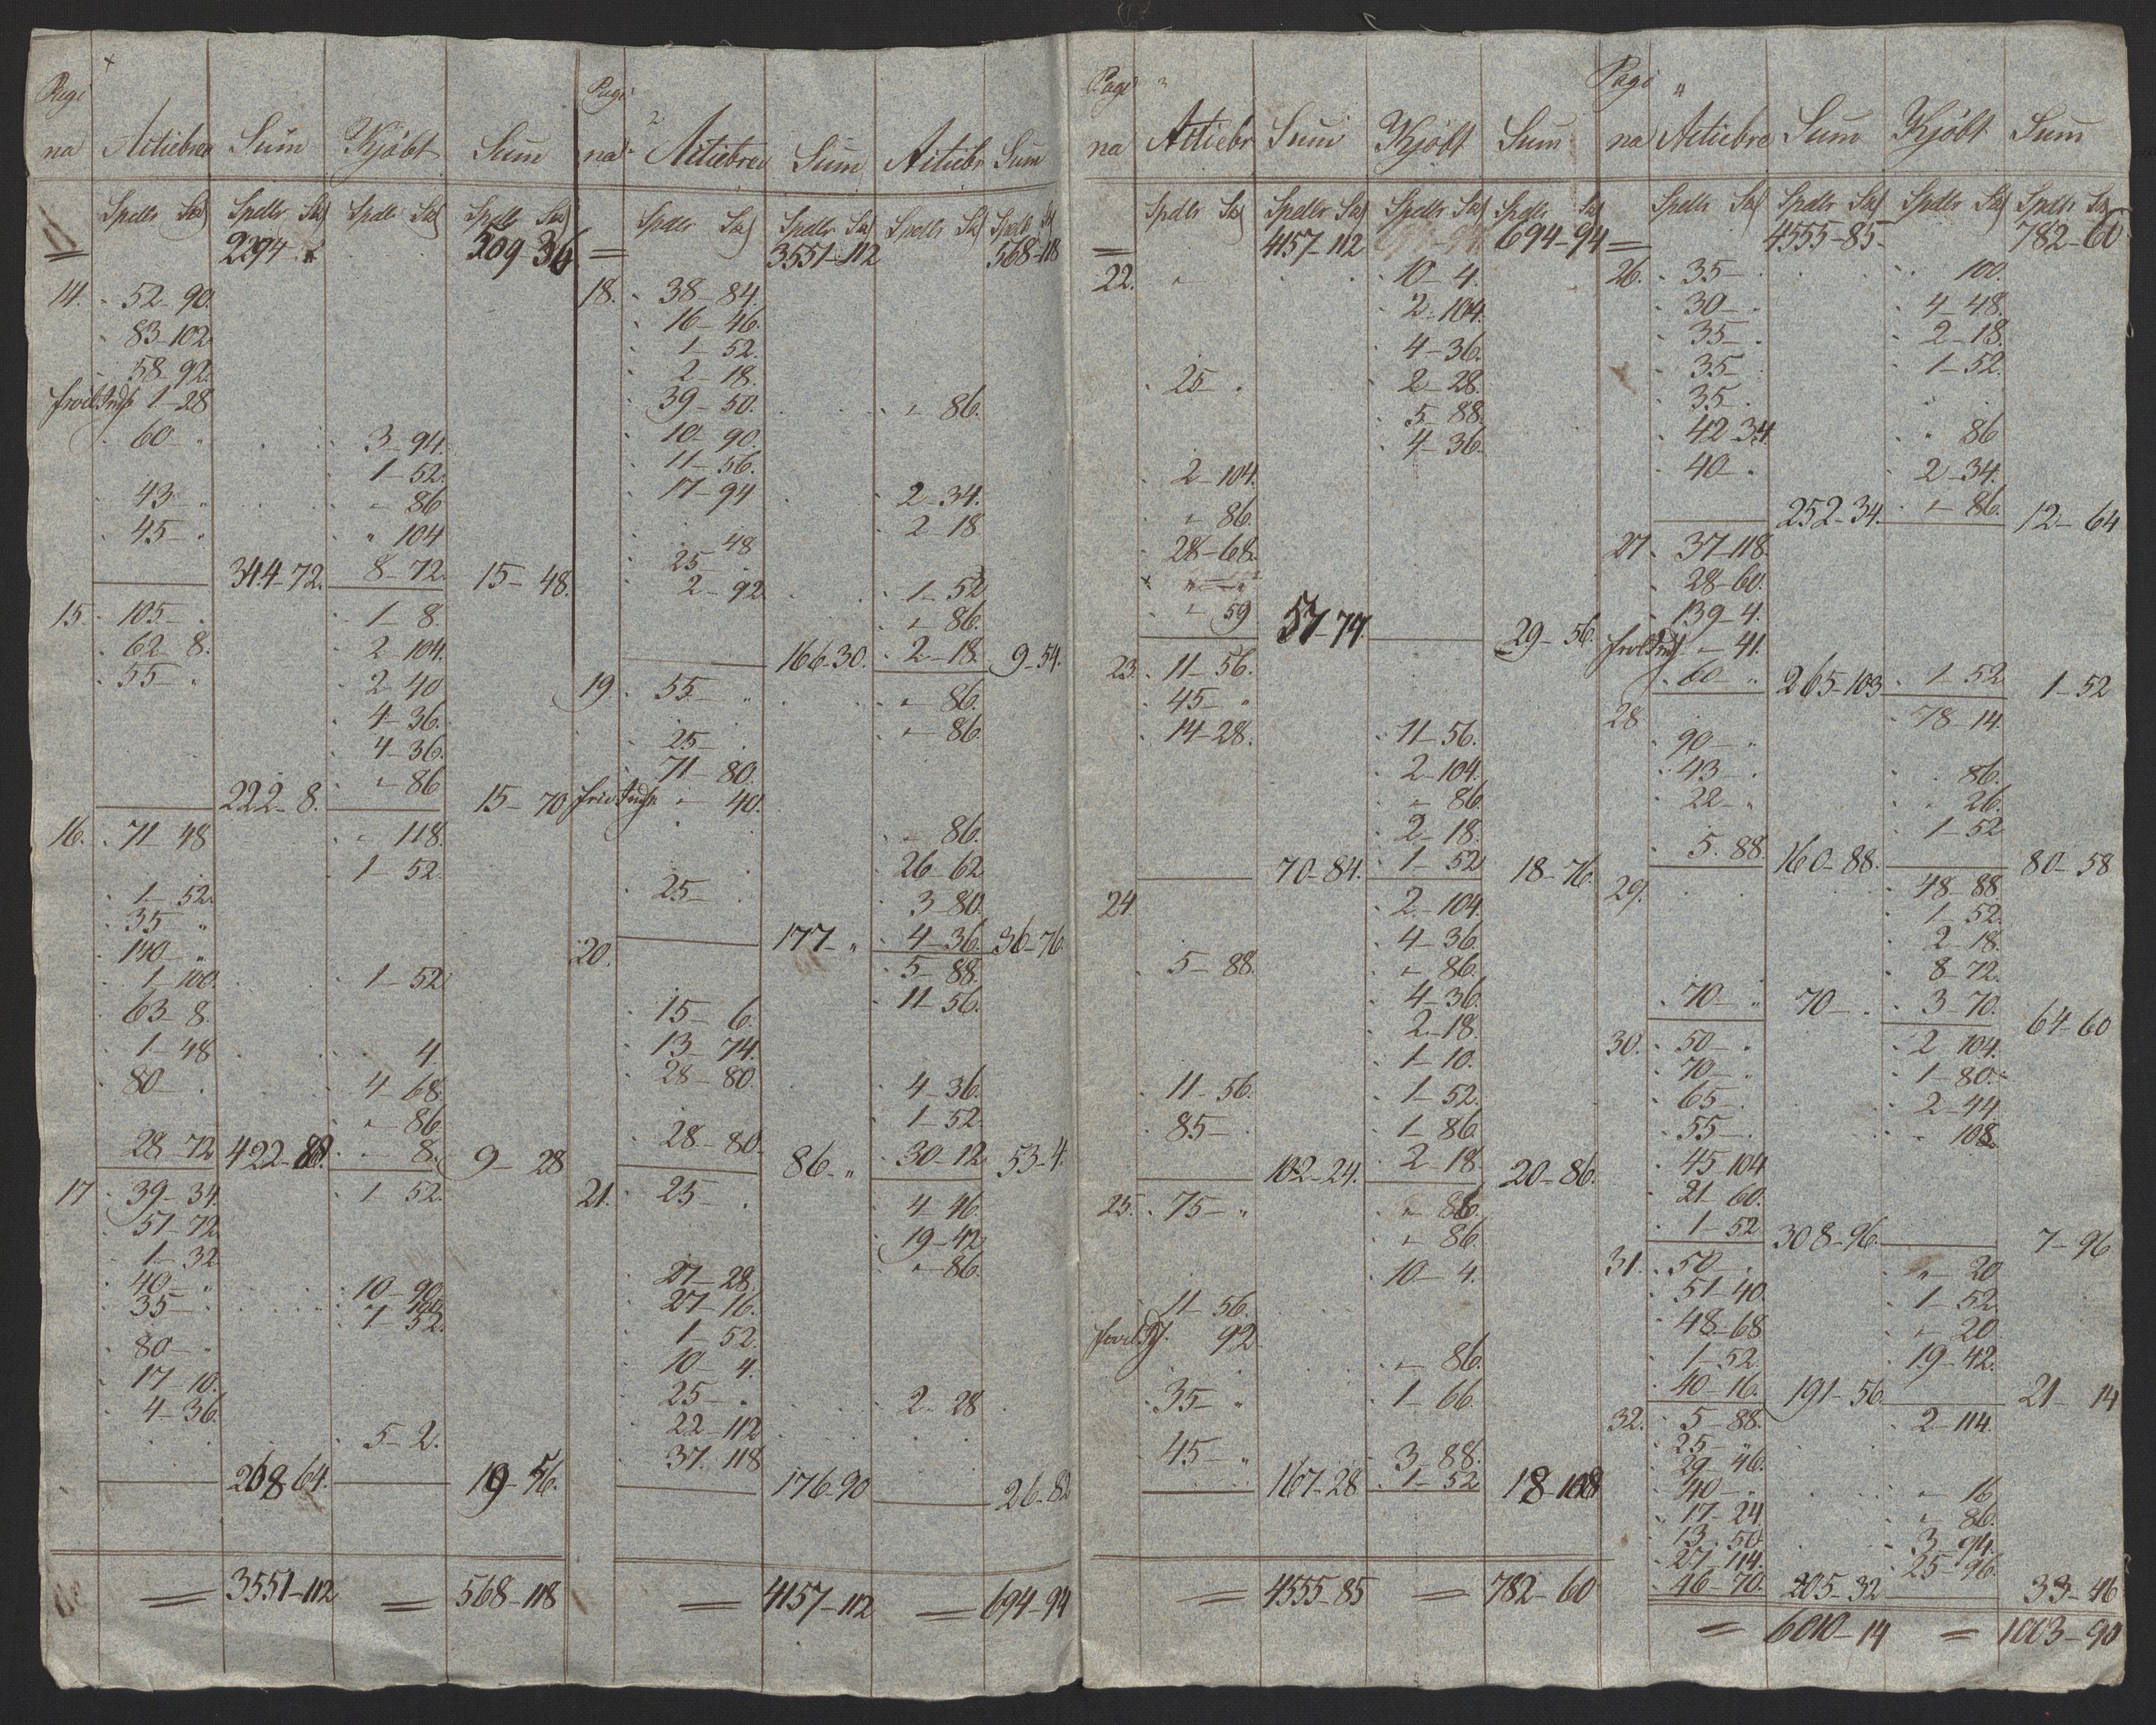 Pagi
na Actiebrev Sum Kjöbt Sum
Spdlr Sk Spdlr Sk Spdlr Sk Spdlr Sk
2294 509-36
14. 52-90.
83-102
58-92.
1-28
60- " 3-94.
1-52.
43- " "-86
45- " " 104
344-72. 8-72. 15-48.
15. 105- 1-8.
62-8. 2-104.
55- " 2-40
4-36.
4-36.
222-8. "-86 15-70
16. 71-48 "-118.
1-52.
1-52.
35 "
140- "
1-100. 1-52
63-8.
1-48 4
80- 4-68.
"-86.
28-72 422- "-8. 9-28
17 39-34. 1-52.
51-72
1-32
40- " 10-90
35- 1-52.
80-
17-10.
4-36.
5-2.
268-64. 19-56.
= 3551-112 = 568-118
Pagi 2
na Actiebrev Sum Actiebr Sum
Spdlr Sk Spdlr Sk Spdlr Sk Spdlr Sk
= 3551-112 568-118
18. 38-84.
16-46.
1-52.
2-18.
39-50. "-86.
10-90.
11-56.
17-94 2-34.
2-18
48
25-
2-92 1-52
"-86.
166-30. 2-18. 9-54.
19. 55- " "-86.
25- "-86
71-80.
"-40.
"-86.
26-62
25- 3-80.
177- " 4-36. 36-76
20. 5-88.
11-56.
15-6.
13-74.
28-80. 4-36.
1-52.
28-80. 86- " 30-12 53-4.
21. 25- 4-46.
19-42
"-86.
27-28.
27-16.
1-52.
10-4.
25- 2-28
22-112
37-118
176-90 26-82
= 4157-112 = 694-94
Pagi 3
na Actiebr Sum Kjöbt Sum
Spdlr Sk Spdlr Sk Spdlr Sk Spdlr Sk
= 4157-112 694-94
22. " 10-4.
2-104.
4-36.
25- 2-28.
5-88.
4-36.
2-104.
"-86.
28-68.
"-59
57-77. 29-56.
23. 11-56.
45- "
14-28. 11-56.
2-104.
"-86
2-18.
70-84. 1-52 18-76.
24. 2-104.
4-36.
5-88. "-86.
4-36.
2-18.
1-10.
11-56. 1-52.
85- 1-86
102-24. 2-18 20-86.
25. 75- " "-86
"-86.
10-4.
11-56.
92.
"-86.
35- " 1-66.
45- " 3-88.
167-28 1-52 18-108
= 4555-85 = 782-60
Pagi "
na Actiebre Sum Kjöbt Sum
Spdlr Sk Spdlr Sk Spdlr Sk Spdlr Sk
= 4555-85- 782-60
26. 35- 100.
30- 4-48.
35- 2-18.
35 1-52.
35
42-34 " 86
40- 2-34.
252-34. "-86. 12-64
27. 37-118.
28-60.
139-4.
"-41.
60- " 265-103 1-52 1-52
28 78-14.
90- "
43- 86.
22- " 26.
1-52
5.88. 160-88. 80-58
29. 48-88
1-52.
2-18.
8-72.
70- " 70- 3-70. 64-60
30. 50- 2-104.
70- 1-80.
65- 2-44
55- 108.
45-104
21-60.
1-52 308-96. 7-96
31. 50- "-20
51-40. 1-52
48-68 "-20
1-52. 19-42.
40-16. 191-56. 21-14
32. 5-88. 2-114.
25- "
29-46.
40- " "-16
17-24. "-86.
13-50 3-94.
27-114. 25-96.
46-70. 205-32 33-46
= 6010-14 = 1003-90